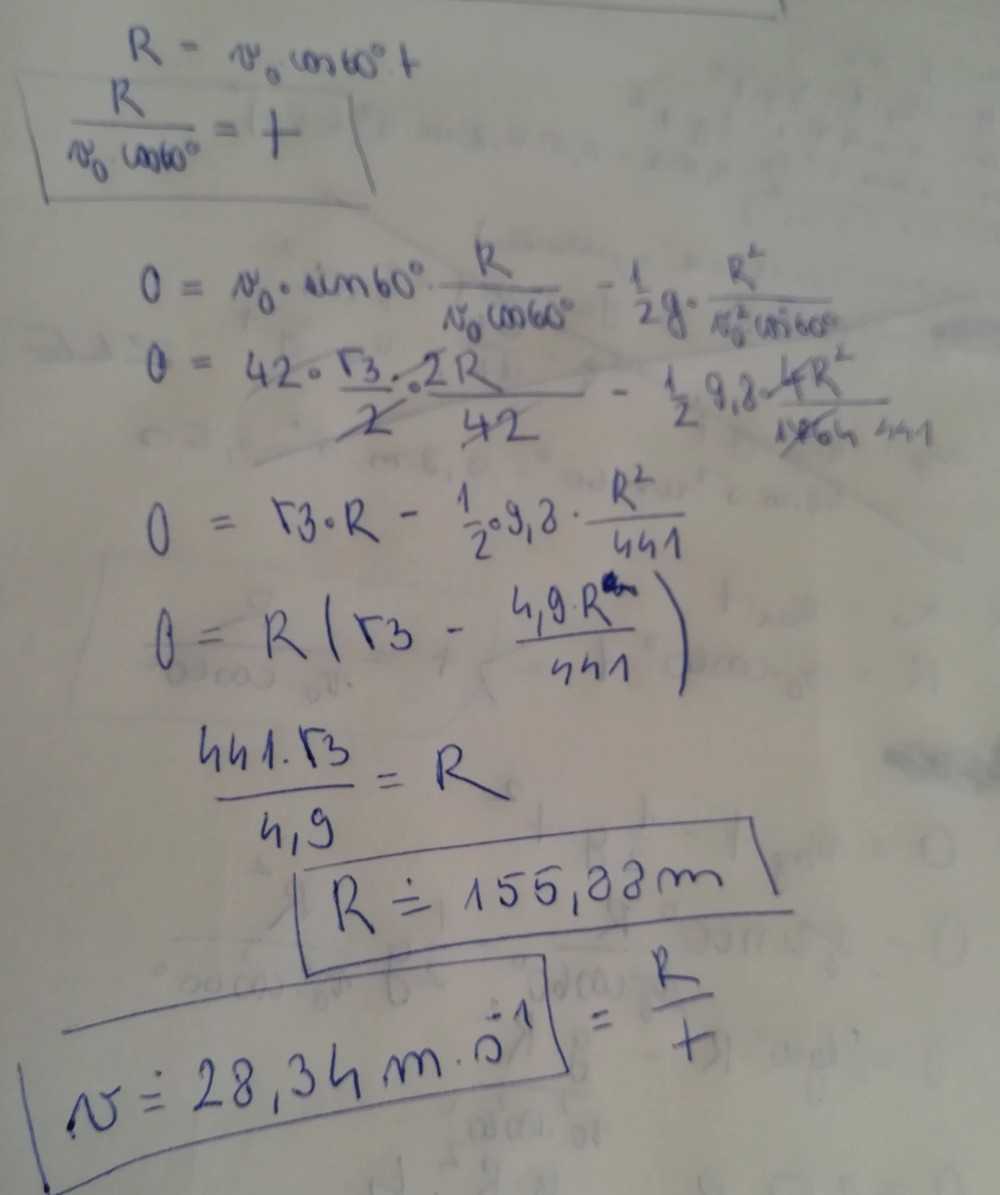 R = v₀ cos60°·t
R / (v₀ cos60°) = t
0 = v₀ · sin60° · R / (v₀ cos60°) - 1/2 g · R² / (v₀² cos²60°)
0 = 42 · √3/2 · 2R/42 - 1/2 9,8 · 4R² / 1764 441
0 = √3 · R - 1/2 · 9,8 · R²/441
0 = R (√3 - 4,9·R/441)
441·√3 / 4,9 = R
R ≐ 155,88 m
v ≐ 28,34 m·s⁻¹ = R/t